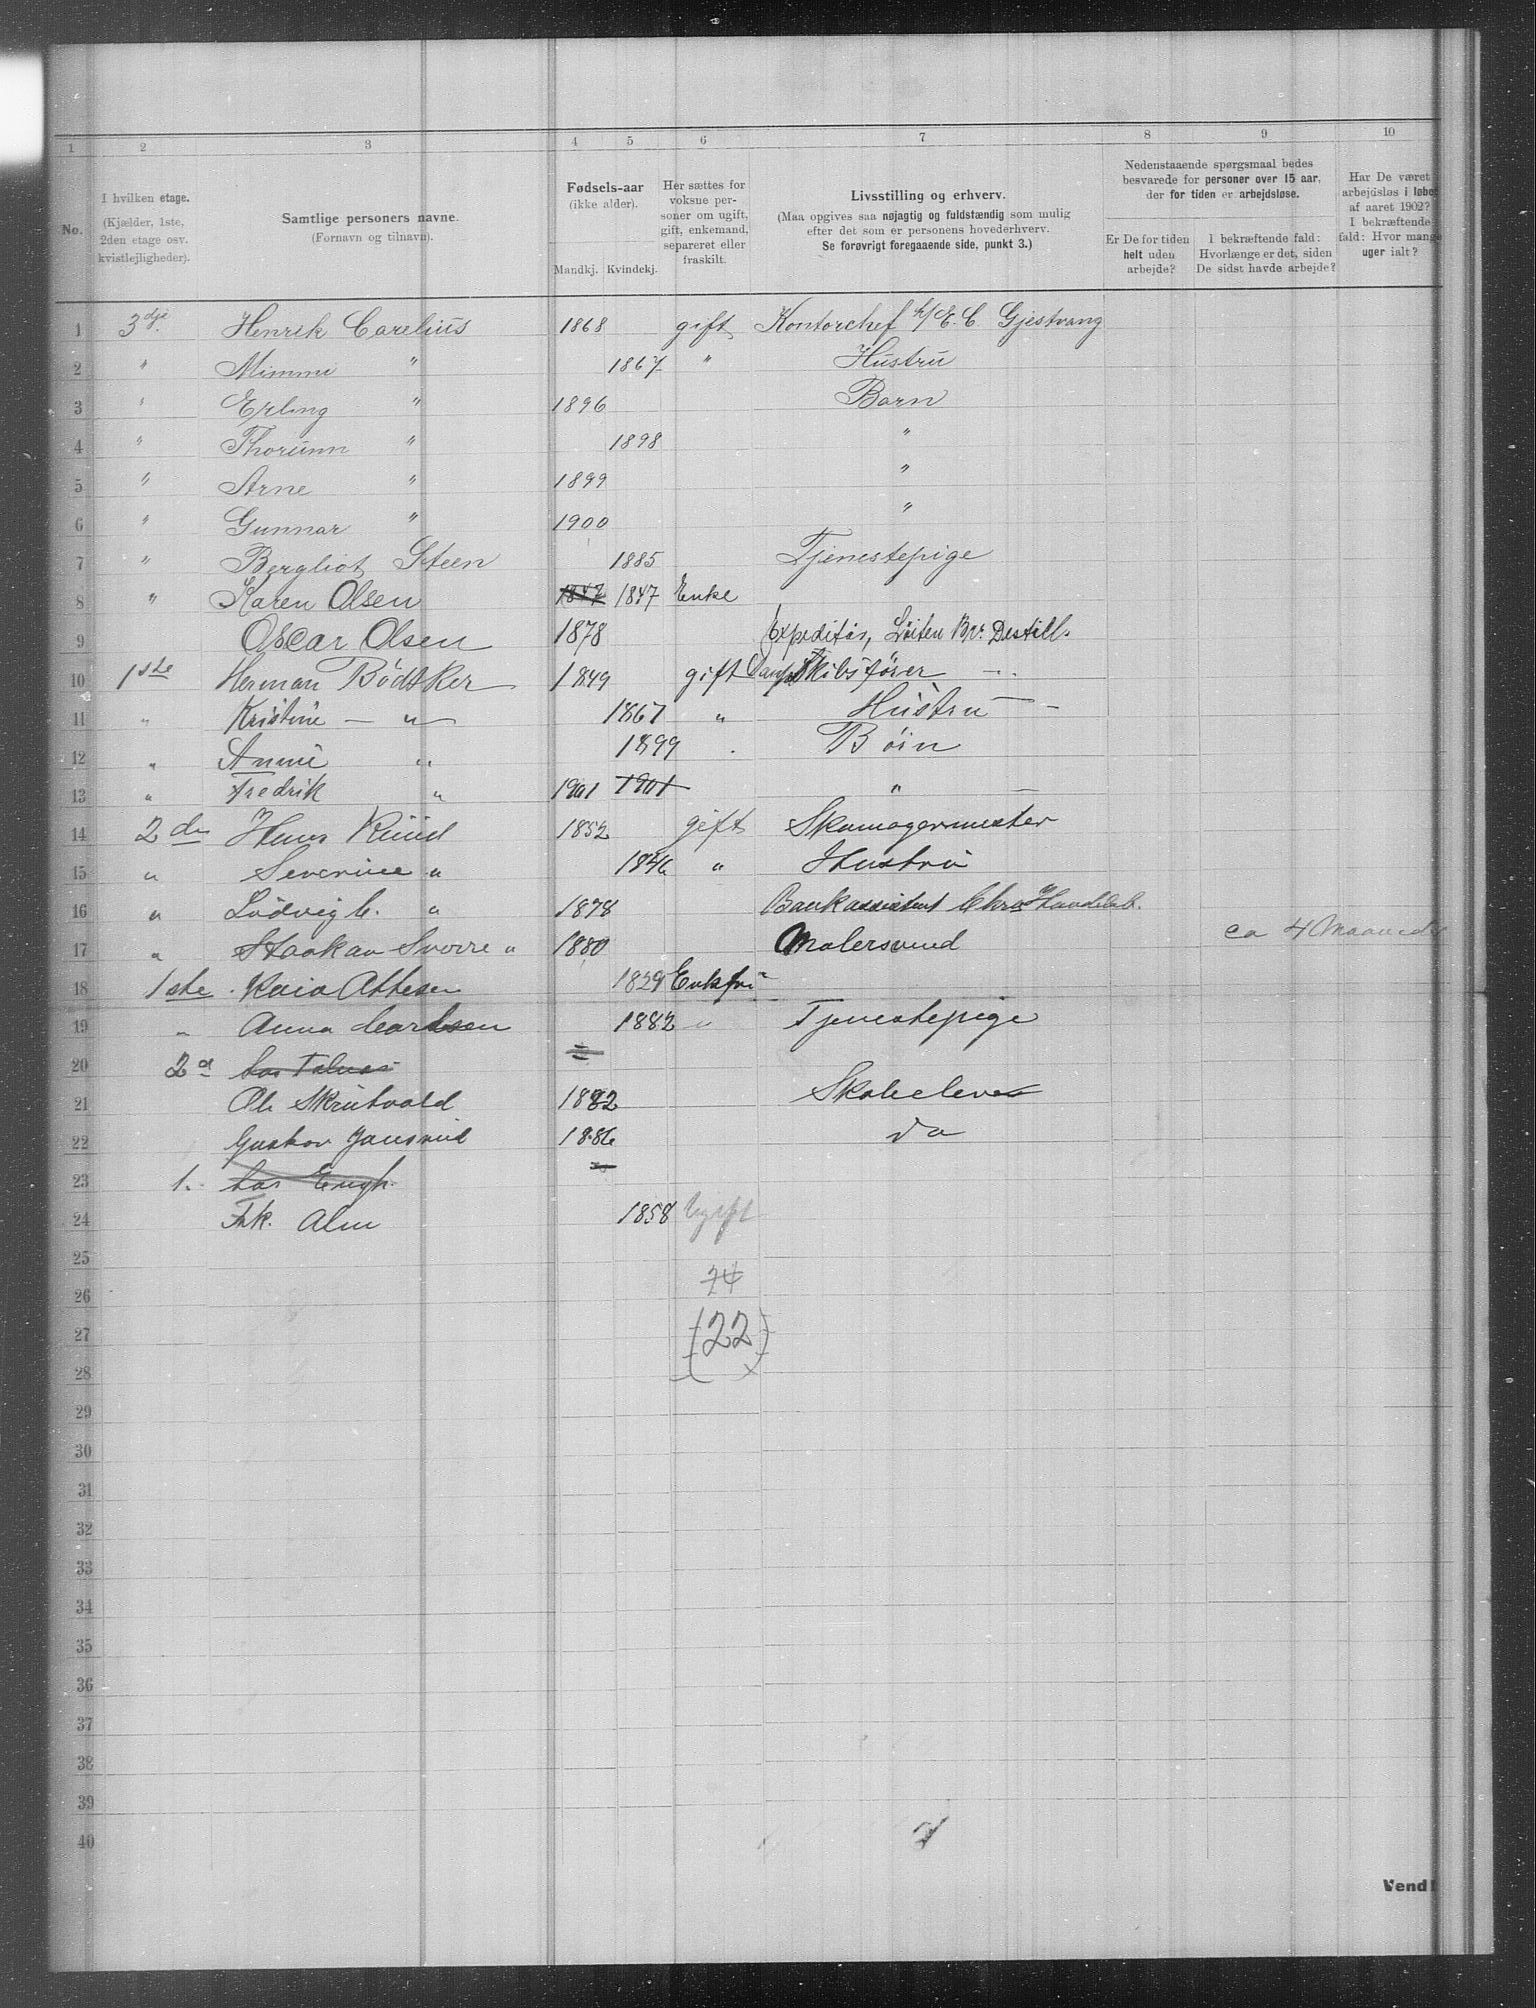 1 2 3 4 5 6 7 8 9 10
No.
I hvilken etage.
(Kjælder, 1ste,
2den etage osv.
kvistlejligheder).
Samtlige personers navne.
(Fornavn og tilnavn).
Fødsels-aar
(ikke alder).
Mandkj. Kvindekj.
Her sættes for
voksne per-
soner om ugift,
gift, enkemand,
separeret eller
fraskilt.
Livsstilling og erhverv.
(Maa opgives saa nøjagtig og fuldstændig som mulig
efter det som er personens hovederhverv.
Se forøvrigt foregaaende side, punkt 3.)
Nedenstaaende spørgsmaal bedes
besvarede for personer over 15 aar,
der for tiden er arbejdsløse.
Er De for tiden
helt uden
arbejde?
I bekræftende fald:
Hvorlænge er det, siden
De sidst havde arbejde?
Har De været
arbejdsløs i løbet
af aaret 1902?
I bekræftende
fald: Hvor mange
uger ialt?
1 3dje Henrik Carelius 1868 gift Kontorchef h/E. C. Gjestvang
2 " Mimmi " 1867 " Hustru
3 " Erling " 1896 Barn
4 " Thorunn " 1898 "
5 " Arne " 1899 "
6 " Gunnar " 1900 "
7 " Bergliot Steen 1885 Tjenestepige
8 " Karen Olsen 1847 1847 Enke
9 Oscar Olsen 1878 Expeditør, Løiten Br. Destill.
10 1ste Herman Bødtker 1849 gift Dampskibsfører
11 " Kristine — " — 1867 " Hustru
12 " Annie " 1899 Børn
13 " Fredrik " 1901 1901 "
14 2den Hans Ruud 1852 gift Skomagermester
15 " Severine " 1846 " Hustru
16 " Ludvig C. " 1878 Bankassistent Chra Handelsb.
17 " Haakon Sverre " 1880 Malersvend ca 4 Maaneder
18 1ste Kaia Attesen 1829 Enkefru
19 " Anna Carlsen 1882 " Tjenestepige
20 2d
21 Ole Skrutvold 1882 Skoleelever
22 Gustav Jansrud 1886 do
23 1. hos Engh.
24 Frk. Alm 1858 Ugift
25
26 24
27 (22)
28
29
30
31
32
33
34
35
36
37
38
39
40
Vend!